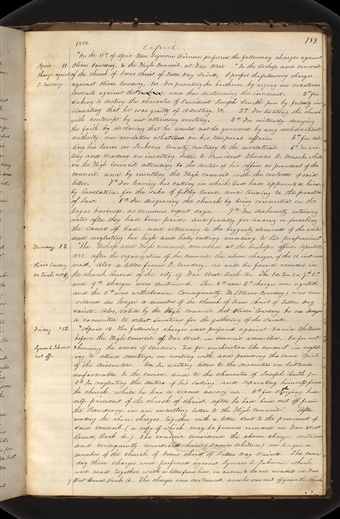 1838
April
789
"On the 11th of April Elder Seymour Brunson preferred the following charges against
April 11 Oliver Cowdery, to the High Council at Far West. "To the Bishop and council
Charges against of the church of Jesus Christ of Latter Day Saints, I prefer the following charges
O. Cowdery. against
For persecuting the brethren, by urging on vexatious
lawsuits against
and thus distressing the innocent. 2d For
seeking to destroy the character of President Joseph Smith jun by falsely in-
sinuating that he was guilty of adultery, &c. 3d For treating the church
with contempt by not attending meeting. 4th For virtually denying
the faith by declaring that he would not be governed by any ecclesiastical
authority nor revelation whatever in his temporal affairs. 5th For sel-
ling his lands in Jackson County contrary to the revelations. 6th For wri-
ting and sending an insulting letter to President Thomas B. Marsh while
on the High Council attending to the duties of his office as president of the
council, and by insulting the High Council with the contents of said
letter. 7th For leaving his calling in which God had appointed him
by revelation for the sake of filthy lucre, and turning to the practice
of law. 8th For disgracing the church by being connected in the
bogus business, as common report says. 9th For dishonestly retaining
notes after they had been paid; and finally for leaving or forsaking
the cause of God, and returning to the beggarly elements of the world
and neglecting his high and holy calling according to his profession."
Thursday 12. "The Bishop and High council assembled at the Bishop's office April 12
1838. After the organization of the council, the above charges of the 11 inst. were
Oliver Cowdery read. Also a letter from O. Cowdery, as will be found recorded in
on trial cut off. the church record of the city of Far West Book A. The 1st 2d 3d 7th 8th
and 9th charges were sustained. The 4th and 5th charges were rejected,
and the 6th was withdrawn. Consequently he (Oliver Cowdery) was con-
sidered no longer a member of the church of Jesus Christ of Latter Day
Saints. Also, voted by the High Council that Oliver Cowdery be no longer
a committee to select locations for the gathering of the Saints.
Friday 13. "April 13. The following charges were preferred against David Whitmer
before the High Council at Far West in council assembled. 1st for not
observing the words of wisdom. 2d for unchristianlike conduct in neglect-
ing to attend meetings in uniting with and possessing the same spirit
of the dissenters. 3d In writing letters to the dissenters in Kirtland
unfavorable to the cause, and to the character of Joseph Smith jun.
4th In neglecting the duties of his calling, and separating himself from
the church while he has a name among us. 5th For signing him-
self president of the church of Christ after he had been cut off from
the Presidency, in an insulting letter to the High Council." After
reading the above charges together with a letter sent to the president of
said council, (a copy of which may be found recorded in Far West
Record Book A.) The council considered the above charges sustained
and consequently considered him (David Whitmer) no longer a
member of the church of Jesus Christ of Latter Day Saints. The same
day three charges were preferred against Lyman E. Johnson which
were read together with a letter from him in answer to them recorded in Far
West Record Book A. The charges were sustained, and he was cut off from the church.